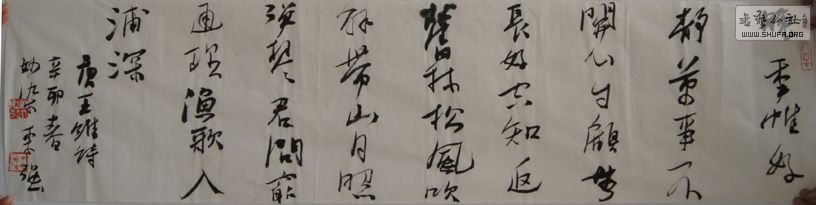 晚年惟好
静萬事不
關心自顧無
長策空知返
舊林松風吹
解帶山月照
彈琴君問窮
通理漁歌入
浦深
唐王維詩
辛卯春
李强
书艺公社
WWW.SHUFA.ORG